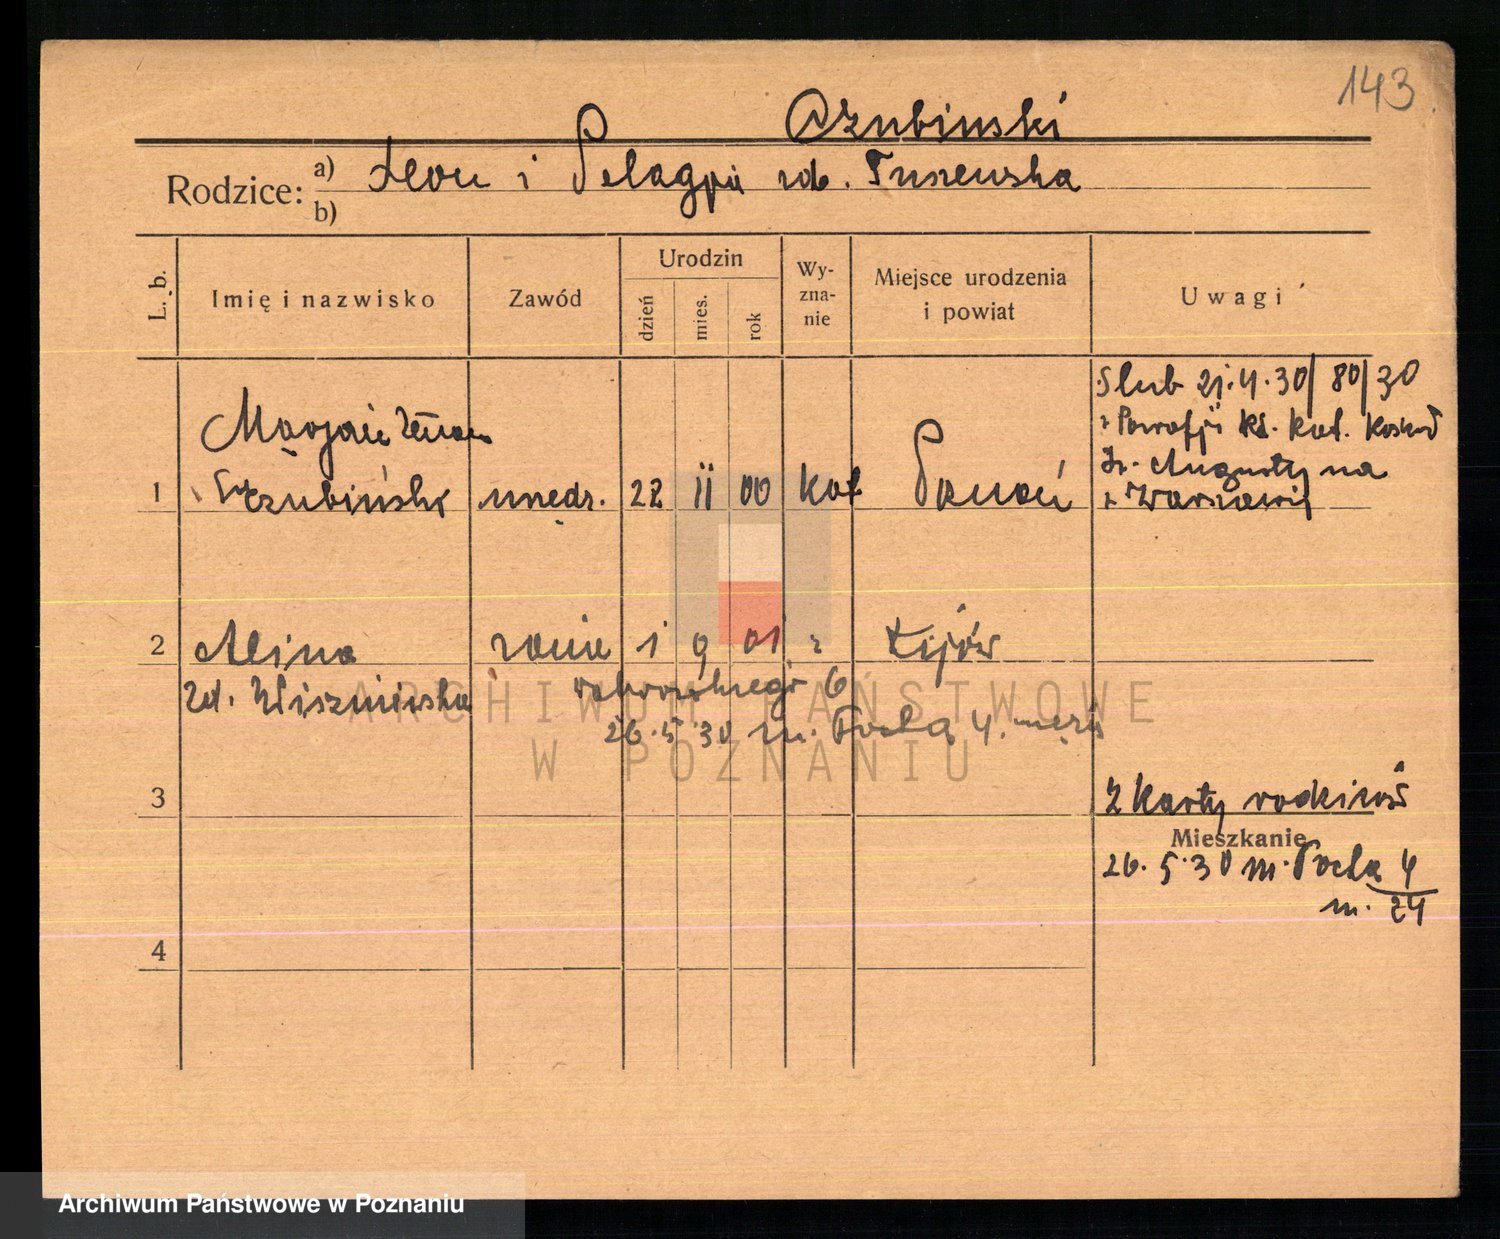 143
Czubinski
Rodzice: a) Leon i Pelagja rdz. Tuszewska
b)
L. b.
Imię i nazwisko
Zawód
Urodzin
dzień
mies.
rok
Wy-
zna-
nie
Miejsce urodzenia
i powiat
Uwagi
Slub 21.4.30/80/30
z Parafji Kt. Kat.
Św. Augustyna
z Warszawy
Marjan Zenon
1 Czubiński urzędn. 22 II 00 kat Poznań
2 Alina żona 1 9 01 z Kijów
zd. Wiszniewska
6
26.5.30 m. Focha 4. męża
3
Z Karty rodziców
Mieszkanie
26.5.30 m. Focha 4
m. 24
4
ARCHIWUM PAŃSTWOWE
W POZNANIU
Archiwum Państwowe w Poznaniu